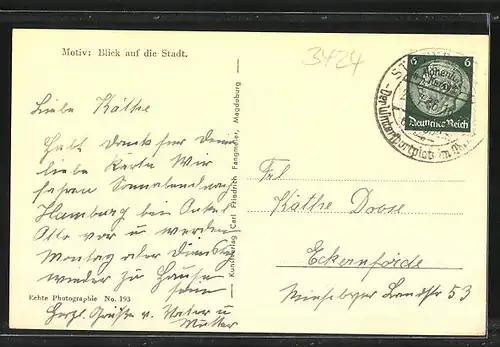 Motiv: Blick auf die Stadt.
3424
Liebe Käthe
Dank für Deine
liebe Karte Wir
fahren Sonnabend nach
Hamburg bei Onkel
Otto vor u werden
Montag oder Dienstag
wieder zu Hause
sein
Herzl. Grüße v. Vater u
Mutter
Echte Photographie No. 193
Kunstverlag Carl Friedrich Fangmeier, Magdeburg
6 6
Deutsches Reich
Der Wintersportplatz im
Frl
Käthe Doose
Eckernförde
Landstr 53